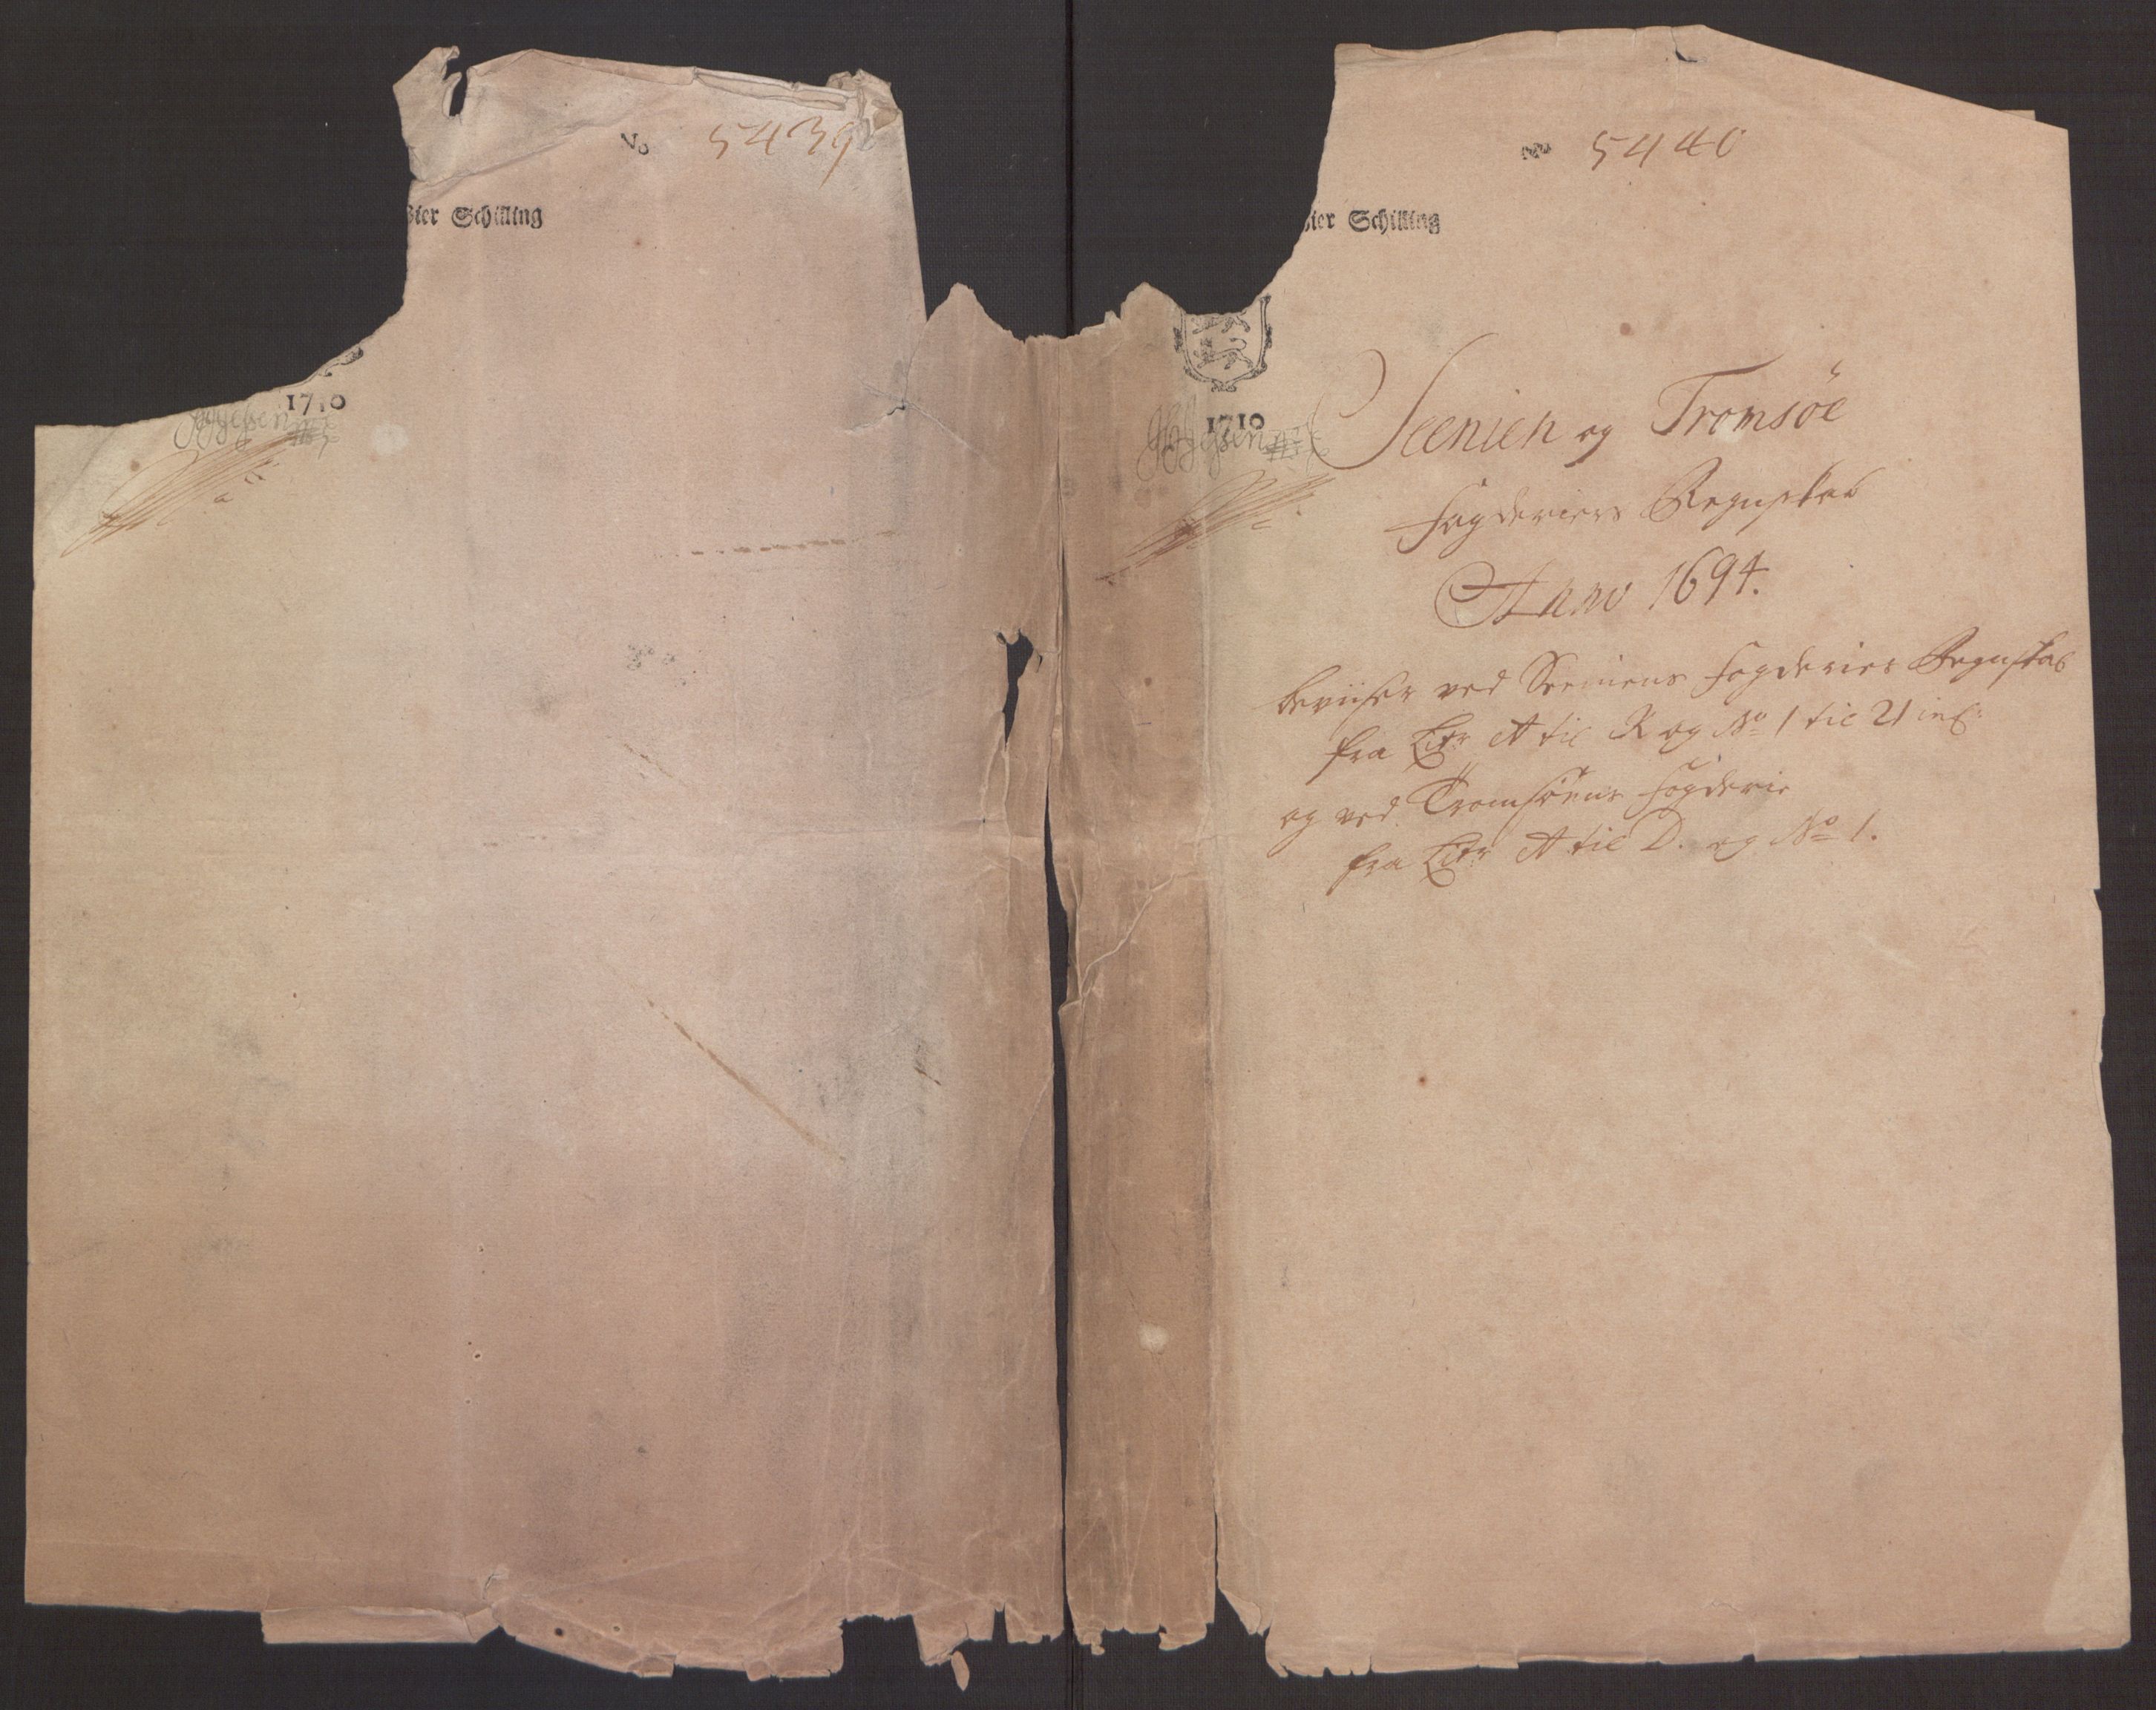 No 5439
Vier Schilling
1710
No 5440
ier Schilling
1710
Seenien og Tromsöe
Fogderiers Regnskab
Anno 1694.
beviiser ved Seeniens Fogderies Regnskab
fra Litr A til R og No 1 til 21 incl:
og ved Tromsöens Fogderie
fra Litr A til D. og No 1.